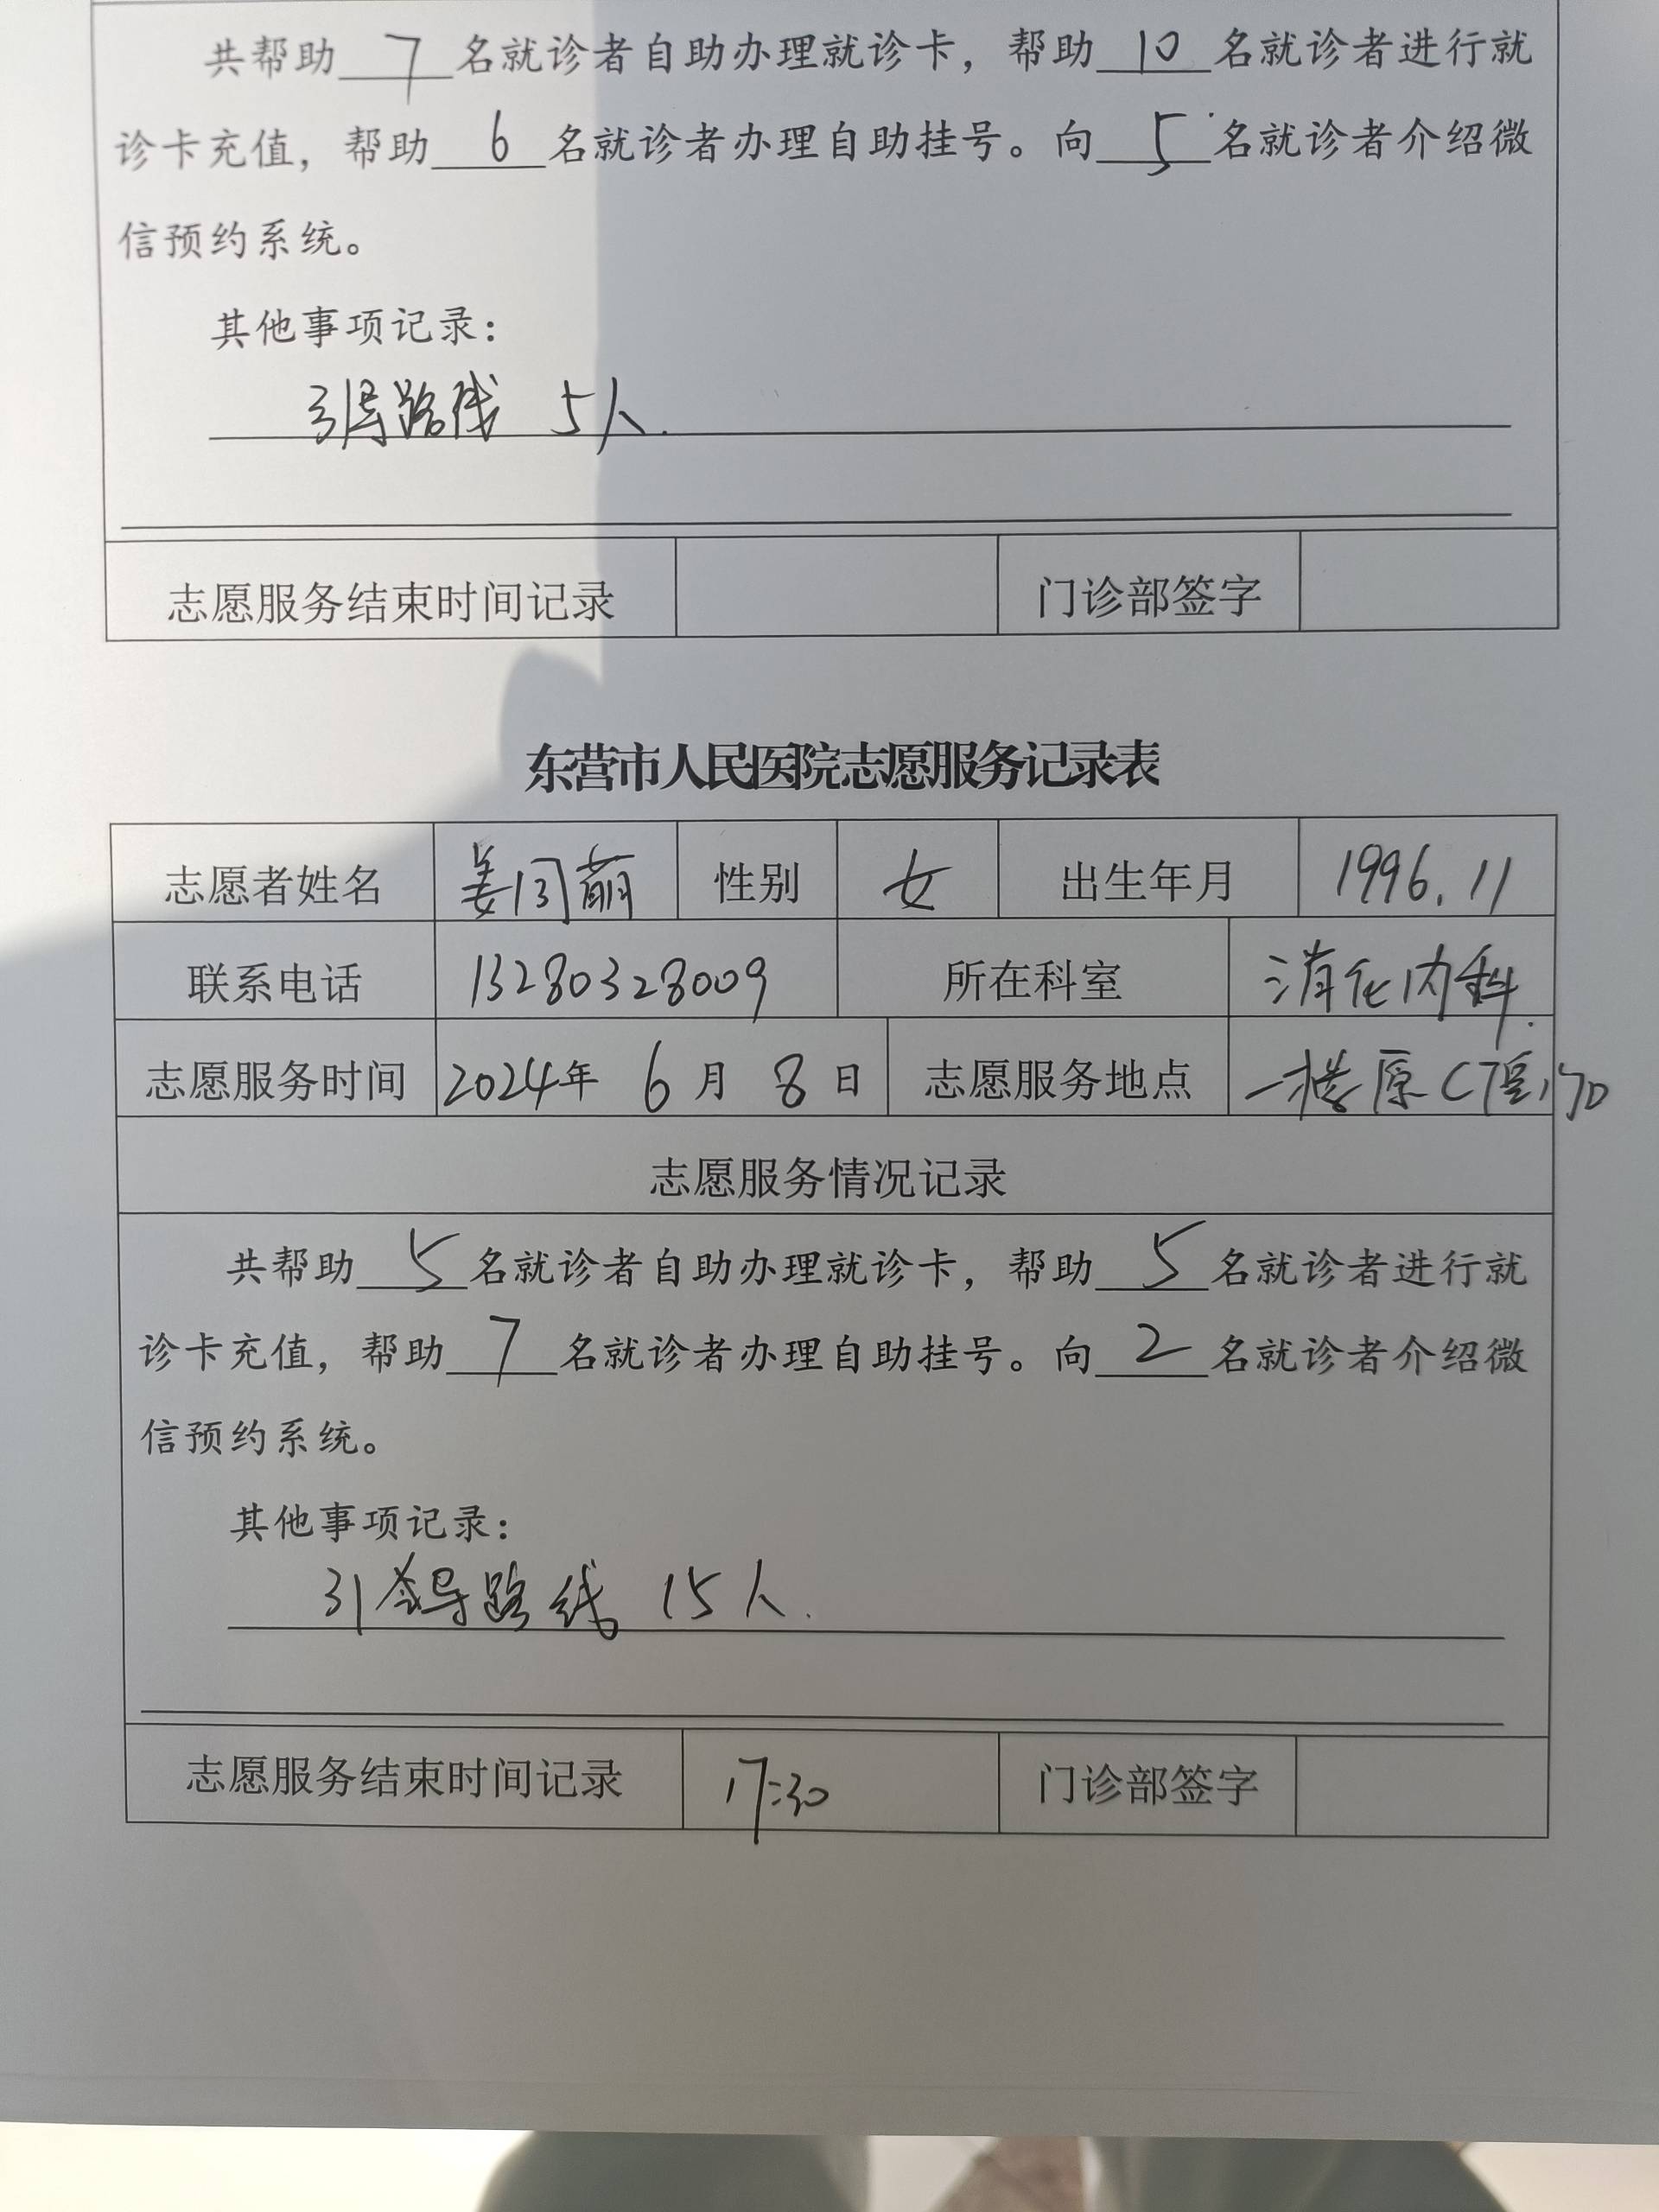 共帮助 7 名就诊者自助办理就诊卡，帮助 10 名就诊者进行就
诊卡充值，帮助 6 名就诊者办理自助挂号。向 5 名就诊者介绍微
信预约系统。
其他事项记录：
引导路线 5人.
志愿服务结束时间记录 门诊部签字
东营市人民医院志愿服务记录表
志愿者姓名 姜闫萌 性别 女 出生年月 1996.11
联系电话 13280328009 所在科室 消化内科.
志愿服务时间 2024年 6 月 8 日 志愿服务地点 一楼原CT室
志愿服务情况记录
共帮助 5 名就诊者自助办理就诊卡，帮助 5 名就诊者进行就
诊卡充值，帮助 7 名就诊者办理自助挂号。向 2 名就诊者介绍微
信预约系统。
其他事项记录：
引领导路线 15人.
志愿服务结束时间记录 17:30 门诊部签字